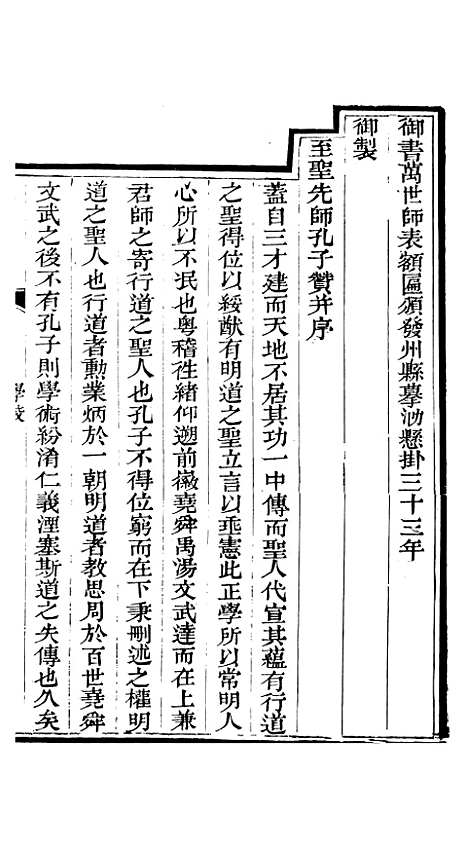 御書萬世師表額匾頒發州縣摹泐懸掛三十三年
御製
至聖先師孔子贊并序
蓋自三才建而天地不居其功一中傳而聖人代宣其蘊有行道
之聖得位以綏猷有明道之聖立言以垂憲此正學所以常明人
心所以不泯也粵稽徃緒仰遡前徽堯舜禹湯文武達而在上兼
君師之寄行道之聖人也孔子不得位窮而在下秉刪述之權明
道之聖人也行道者勲業炳於一朝明道者教思周於百世堯舜
文武之後不有孔子則學術紛淆仁義湮塞斯道之失傳也久矣
學校